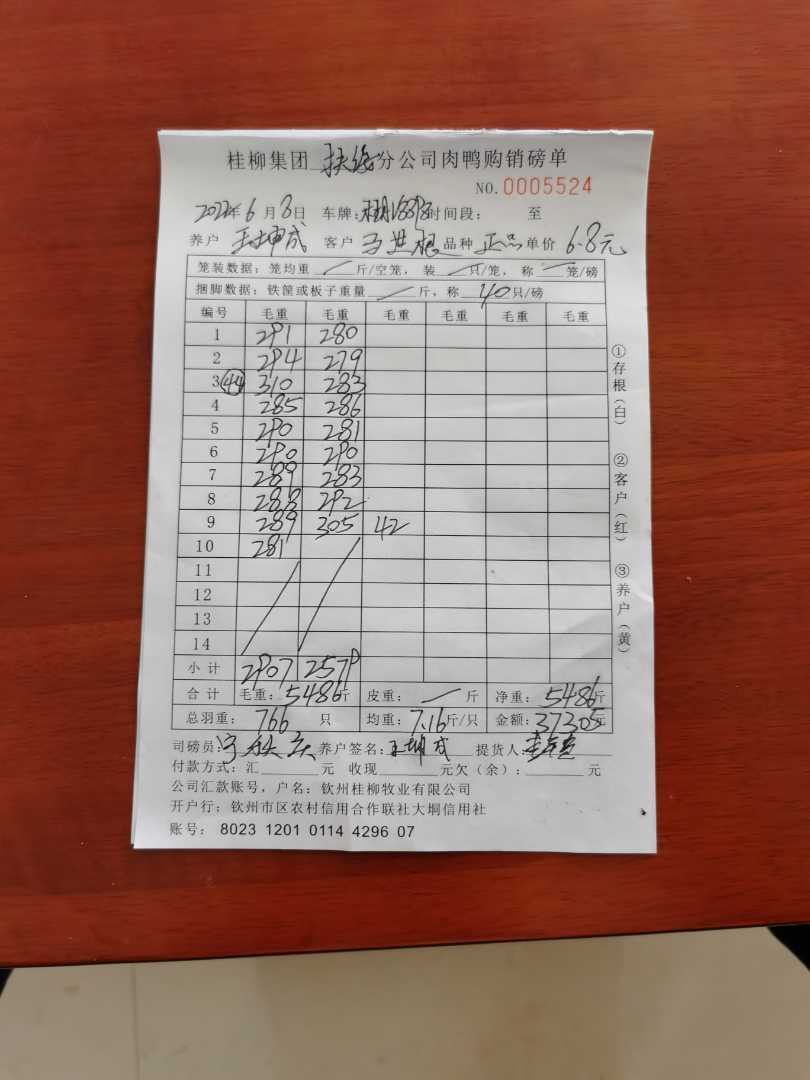 桂柳集团 扶绥 分公司肉鸭购销磅单
NO.0005524
2022年6月3日 车牌: 时间段: 至
养户 王坤成 客户 马世根 品种 正品 单价 6.8元
笼装数据:笼均重 / 斤/空笼,装 / 只/笼,称 / 笼/磅
捆脚数据:铁筐或板子重量 / 斤,称 40只/磅
编号 毛重 毛重 毛重 毛重 毛重 毛重
1 291 280
2 294 279
3 44 310 283
4 285 286
5 290 281
6 290 290
7 289 283
8 288 292
9 289 305 42
10 281
11
12
13
14
小计 2907 2579
合计 毛重:5486斤 皮重: / 斤 净重:5486斤
总羽重: 766 只 均重:7.16斤/只 金额:37305元
司磅员: 养户签名:王坤成 提货人:
付款方式:汇 元 收现 元欠(余): 元
公司汇款账号,户名:钦州桂柳牧业有限公司
开户行:钦州市区农村信用合作联社大垌信用社
账号: 8023 1201 0114 4296 07
①存根(白)
②客户(红)
③养户(黄)